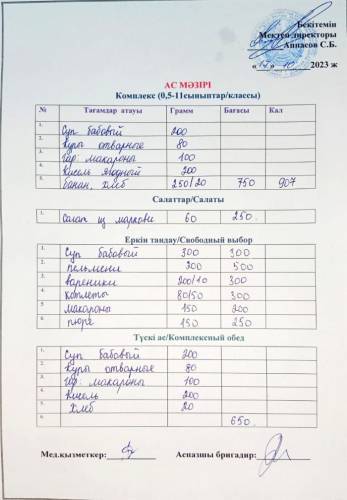 Бекітемін
Мектеп директоры
Аппасов С.Б.
«17» 10 2023 ж
АС МӘЗІРІ
Комплекс (0,5-11сыныптар/классы)
№ Тағамдар атауы Грамм Бағасы Кал
1. Суп бабовый 200
2. Куры отварные 80
3. гар: макароны 100
4. Кисель ягодный 200
5. банан, хлеб 250/20 750 907
Салаттар/Салаты
1. Салат из моркови 60 250.
Еркін таңдау/Свободный выбор
1. Суп бабовый 300 300
2. пельмени 200 500
3. вареники 200/10 300
4. котлеты 80/50 300
5. макароны 150 200
6. пюре 150 250
Түскі ас/Комплексный обед
1. Суп бабовый 200
2. Куры отварные 80
3. гар: макароны 100
4. Кисель 200
5. хлеб 20
6. 650.
Мед.қызметкер: Аспазшы бригадир: